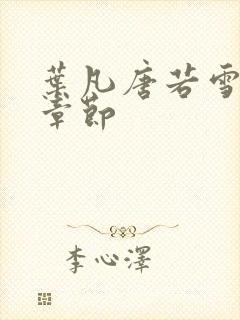 葉凡唐若雪
章節
李心澤